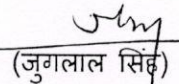 (जुगलाल सिंह)